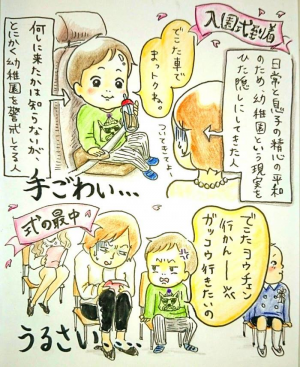 入園式到着
日常と息子の精心の平和
のため、幼稚園という現実を
ひた隠しにしてきた人
でこた車で
まっトクね。
ついてきてよ〜
何しに来たかは知らないが
とにかく幼稚園を警戒してる人
手ごわい…
式の最中
でこたヨウチエン
行かん──
ガッコウ行きたいの
うるさい……